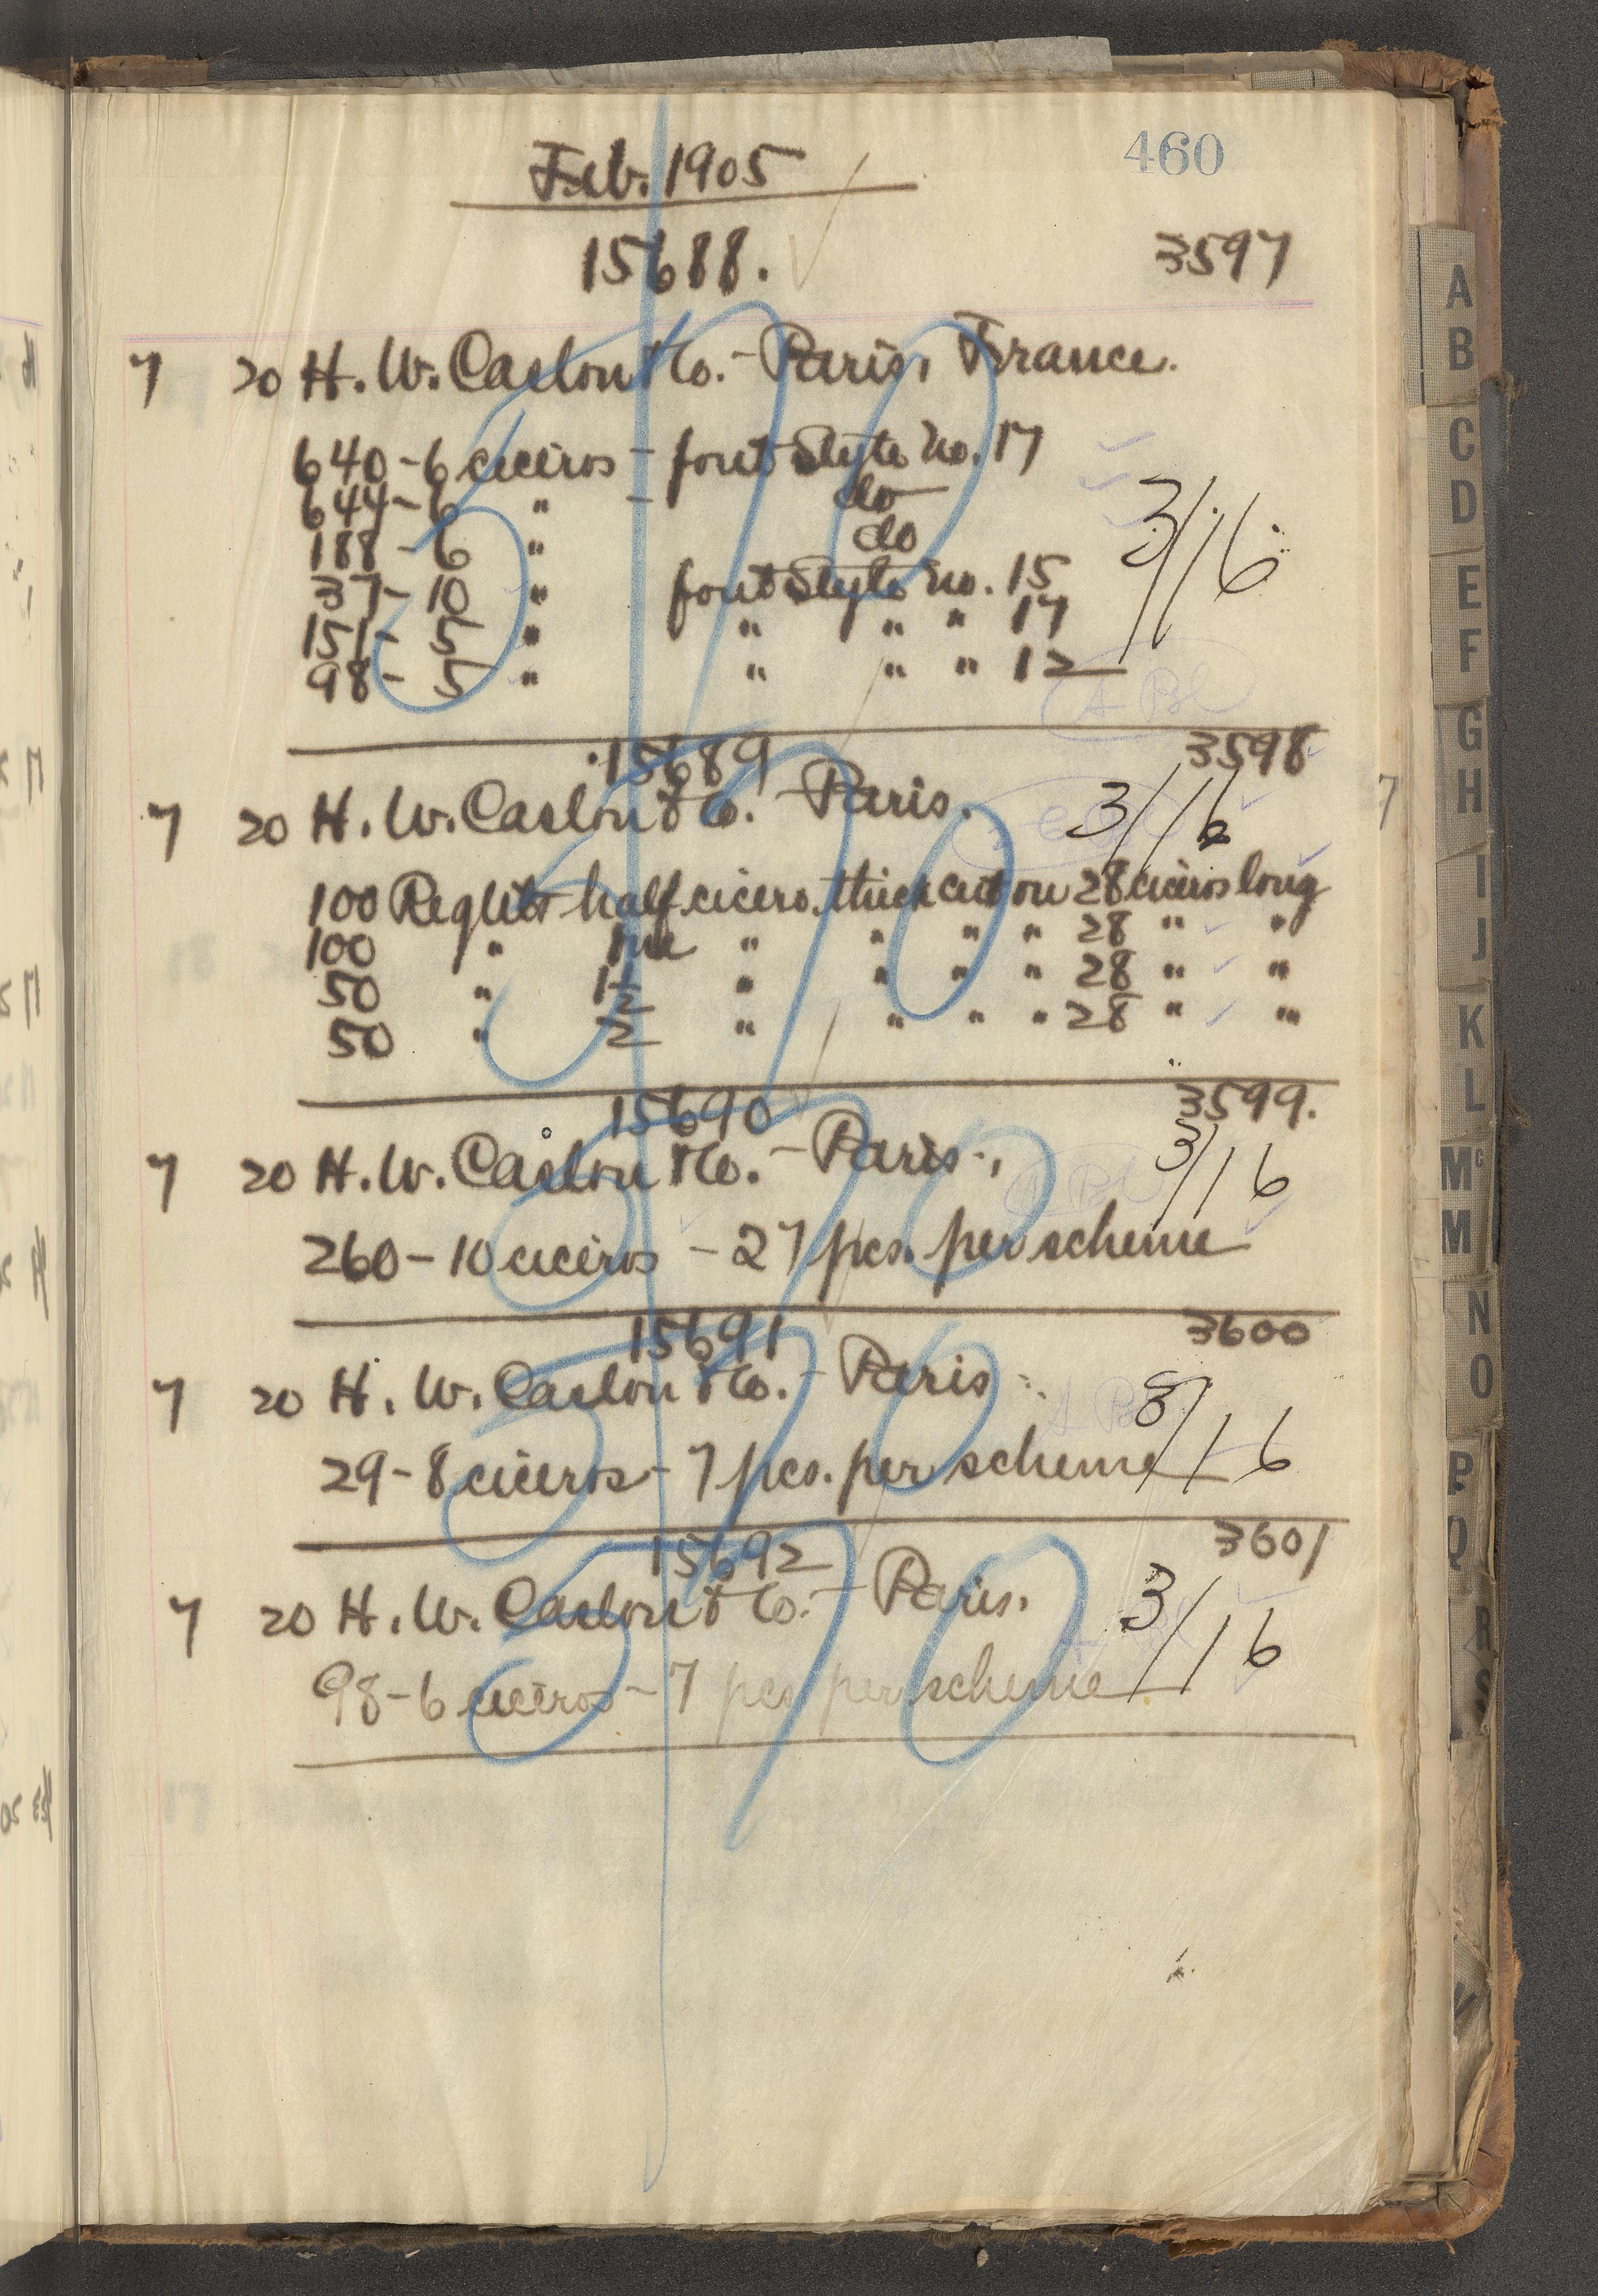 460
Feb. 1905
15688. 3597
7 20 H. W. Caslon & Co. - Paris, France.
640 - 6 ciceros - font Style No. 17
644 - 6 " - do
188 - 6 " do
37 - 10 " font Style No. 15
151 - 5 " " " " 17
98 - 5 " " " " 12
3/16
A Bl
15689 3598
7 20 H. W. Caslon & Co. - Paris. 3/16
100 Reglets half cicero thick cut on 28 ciceros long
100 " one " " " " 28 " "
50 " 1½ " " " " 28 " "
50 " 2 " " " " 28 " "
15690 3599.
7 20 H. W. Caslon & Co. - Paris. 3/16
260 - 10 ciceros - 27 pcs. per scheme
15691 3600
7 20 H. W. Caslon & Co. - Paris 3/16
29 - 8 ciceros - 7 pcs. per scheme
15692 3601
7 20 H. W. Caslon & Co. - Paris. 3/16
98 - 6 ciceros - 7 pcs per scheme
570
570
570
570
570
A
B
C
D
E
F
G
H
I
J
K
L
Mc
M
N
O
P
Q
R
S